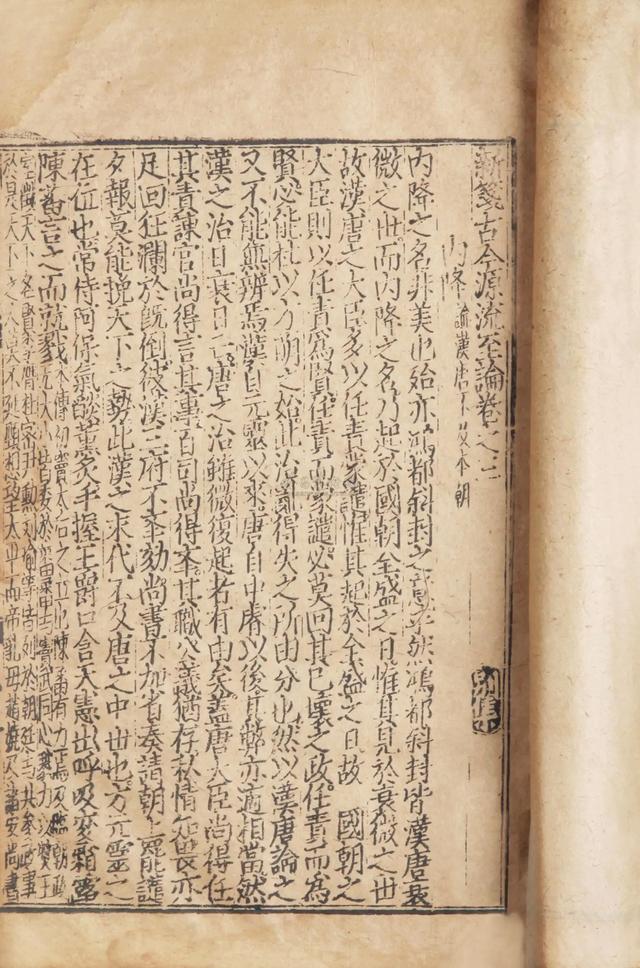 新箋古今源流至論卷之二 別集
内降 論漢唐不及本朝
内降之名非美也殆亦鴻都斜封之意乎然鴻都斜封皆漢唐衰
微之世而内降之名乃起於國朝全盛之日惟其見於衰微之世
故漢唐之大臣多以任責蒙譴惟其起於全盛之日故 國朝之
大臣則以任責爲賢任責而蒙譴必莫回其已壞之政任責而爲
賢必能杜以方萌之始此治亂得失之所由分也然以漢唐論之
又不能無辨焉漢自元靈以來唐自中睿以後其弊亦適相當然
漢之治日衰日亡唐之治雖微復起者有由矣蓋唐大臣尚得任
其責諫官尚得言其事百司尚得奉其職公義猶存私情知畏亦
足回狂瀾於既倒後漢三府不奉劾尚書不加省奏請朝上罷譴
夕報莫能挽天下之勢此漢之末代不及唐之中世也方元靈之
在位也常侍阿保氣燄薰炙手握王爵口含天憲出呼吸変霜露
陳蕃言之而就戮本傳初竇太后之立也陳蕃有力焉及臨朝政
於是天下之